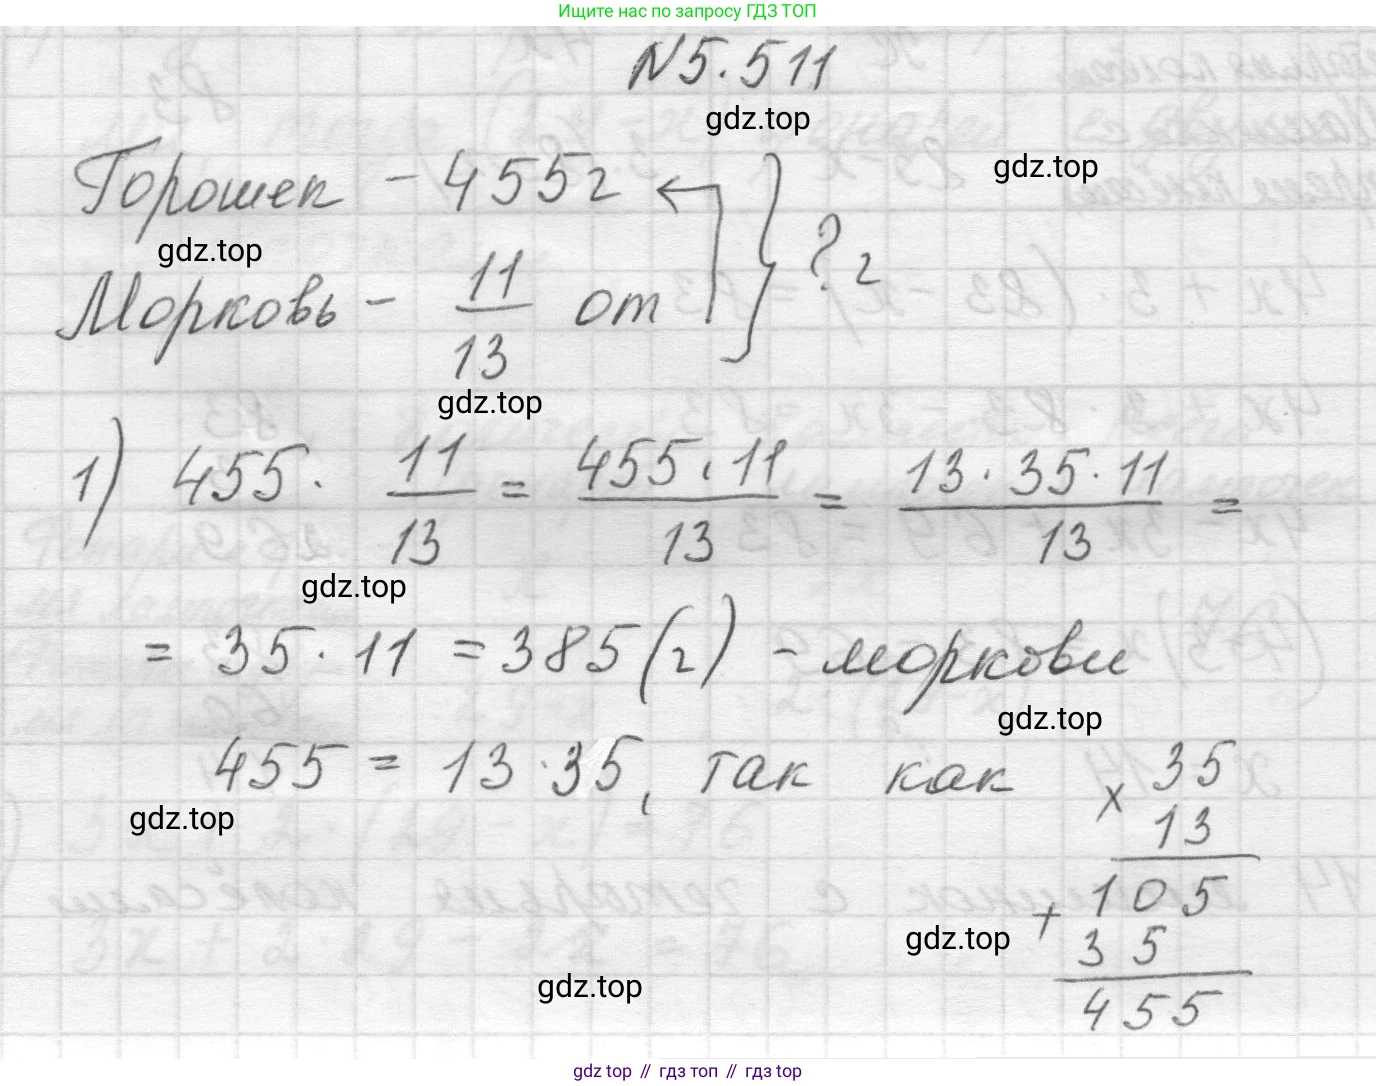 Ищите нас по запросу ГДЗ ТОП
№5.511
gdz.top
gdz.top
Горошек - 455г
gdz.top
? г
Морковь - 11/13 от
gdz.top
1) 455 · 11/13 = 455 · 11/13 = 13 · 35 · 11/13 =
gdz.top
= 35 · 11 = 385 (г) - моркови
gdz.top
455 = 13 · 35, так как
gdz.top
× 35
13
105
+ 35
455
gdz.top
gdz.top
gdz top // гдз топ // гдз top